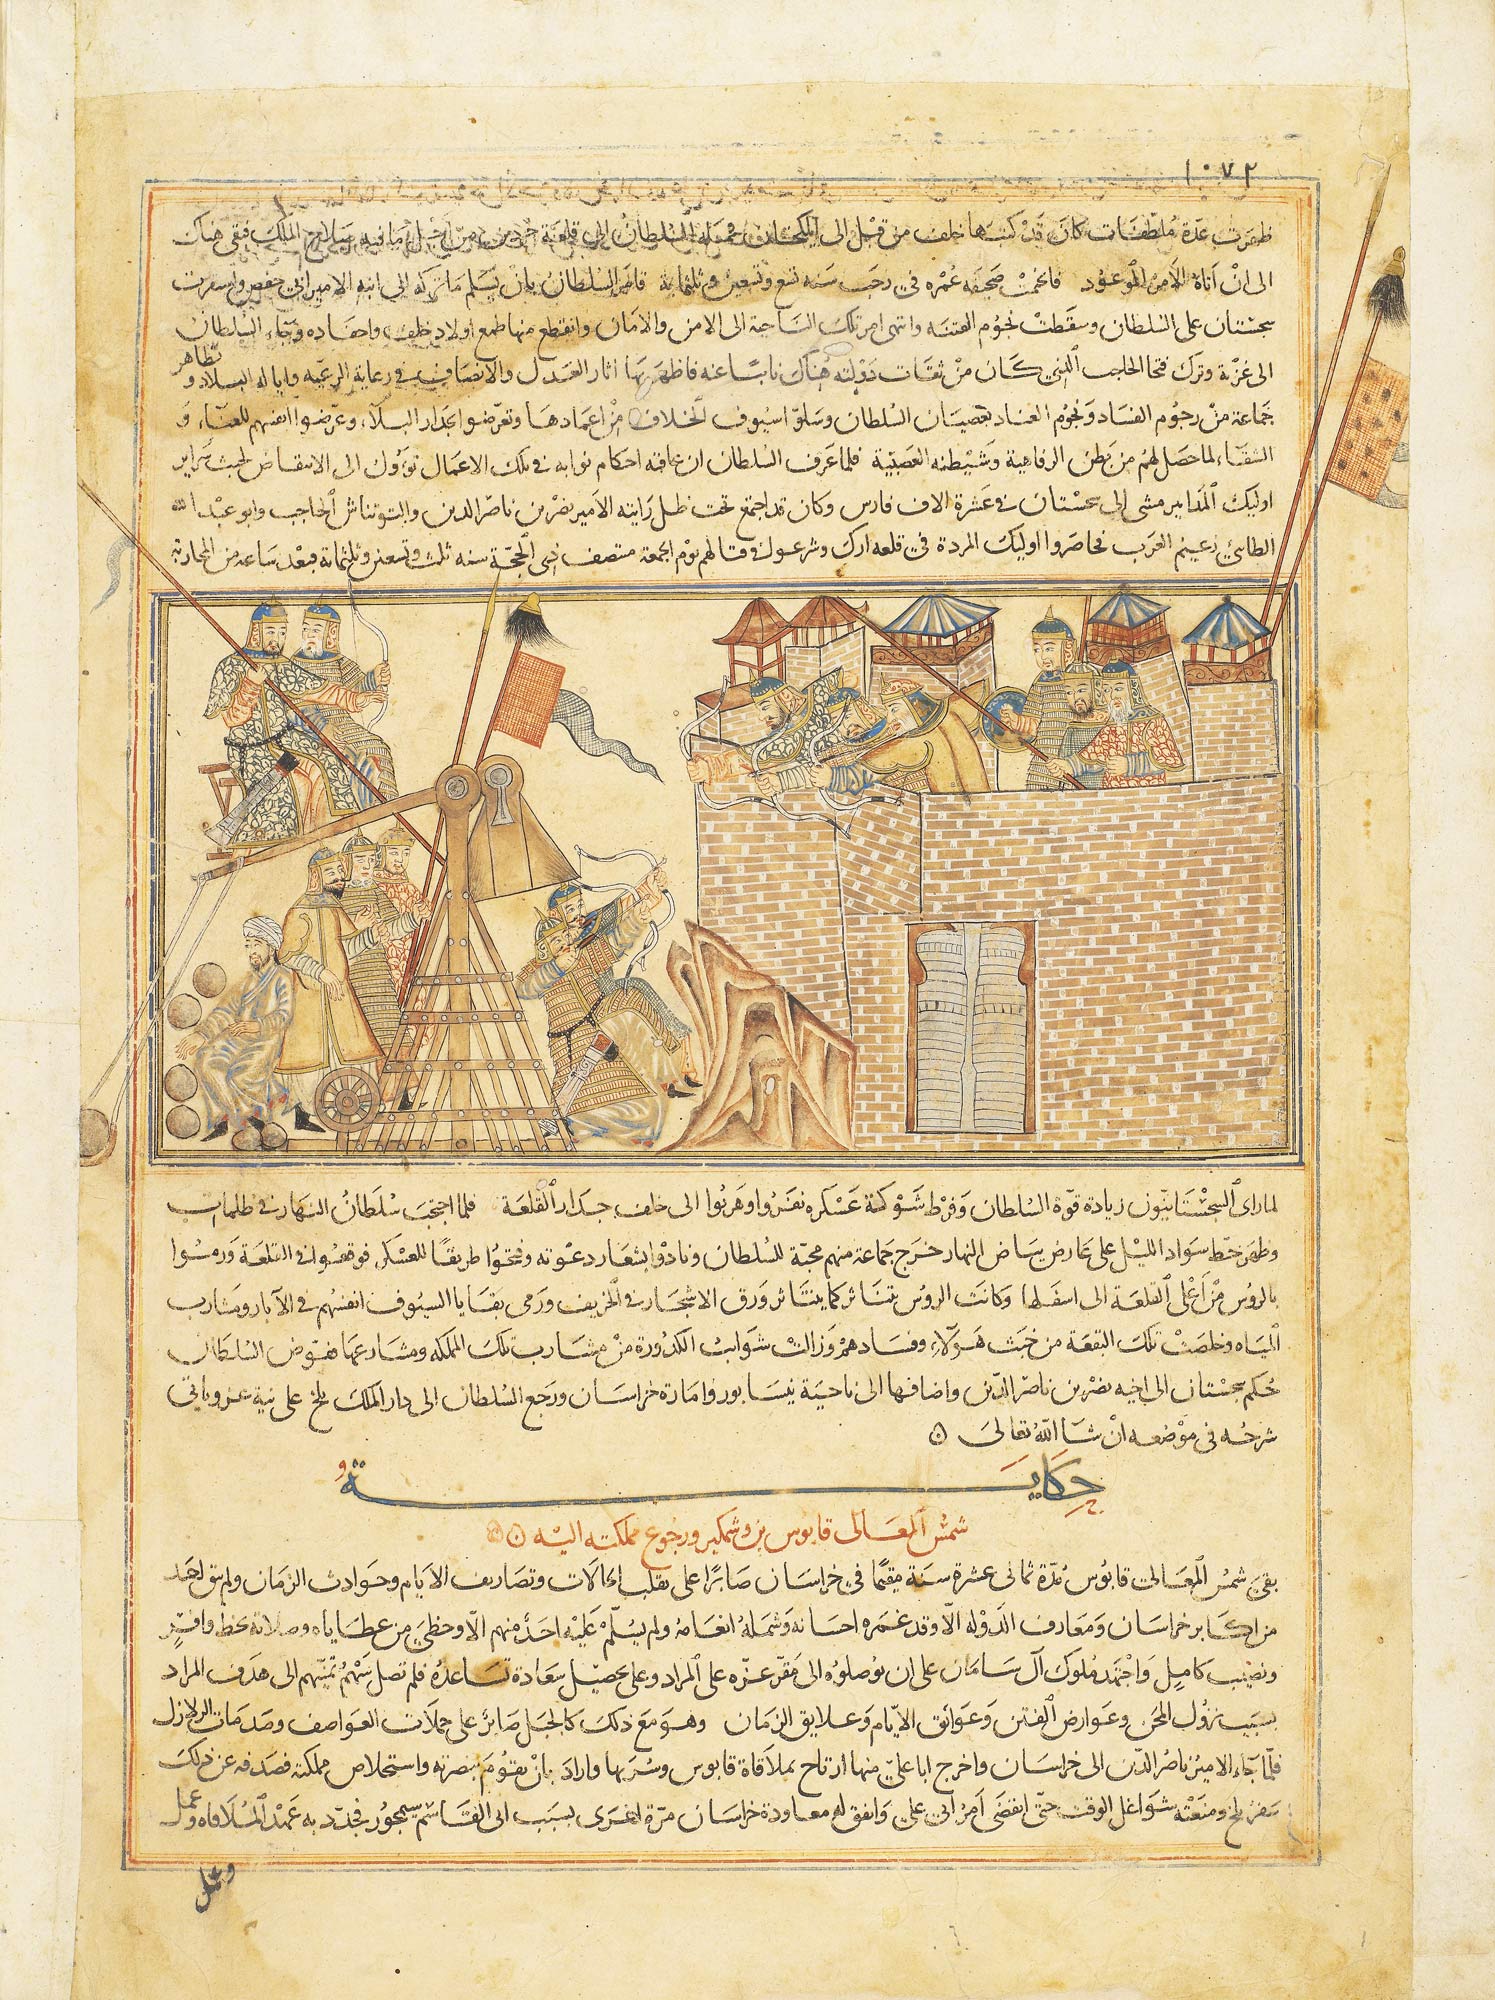 ١٠٧٢
ظهرت عدة ملطفات كان قد كتبها خلف من قبل الى ايلكخان فحمله السلطان الى قلعة جردين من اجل ما فيه صلاح الملك فبقى هناك
الى انْ اتاهُ الامر الموعود فاختمت صحيفه عمره في رجب سنه تسع وتسعين وثلثماية فامر السلطانُ بان يسلم ما تركه الى ابنه الامير ابي حفص واستقرت
سجستان على السلطان وسقطت نجوم الفتنه وانتهى امر تلك الناحية الى الامن والامان وانقطع منها طمع اولاد خلف واحفاده وجاء السلطان
الى غزنة وترك قنجا الحاجب الذي كان منْ ثقات دولته هناك نايبًا عنه فاظهر بها اثار العدل والانصاف في رعاية الرعيه وايالة البلاد و تظاهر
جماعة منْ رجوم الفساد ونجوم العناد بعصيان السلطان وسلّوا سيوف الخلاف من اغمادها وتعرضوا بجدار البلاء وعرّضوا انفسهم للعناء و
الشقاء لما حصل لهم من بطن الرفاهية وشيطنه العصبّية فلما عرف السلطان ان عاقبه احكام نوابه في تلك الاعمال تؤول الى الانتقاض لخبث سراير
اوليك المدابير مشى الى سجستان في عشرة الاف فارس وكان قد اجتمع تحت ظل رايته الامير نصر بن ناصر الدين والتوتناش الحاجب وابو عبد الله
الطائي زعيم العرب فحاصروا اوليك المردة في قلعه ارك وشرعوا في قتالهم يوم الجمعة منتصف ذى الحجّة سنه ثلث وتسعين وثلثماية فبعد ساعه من المحاربة
لما راى السجستانيّون زيادة قوة السلطان وفرط شوكة عسكره نفروا وهربوا الى خلف جدار القلعة فلما احتجب سلطانُ النهار في ظلمات
وظهر خط سواد الليل على عارض بياض النهار خرج جماعة منهم محبّة للسلطان ونادوْا بشعار دعوته وفتحوا طريقًا للعسكر فوقفوا في القلعة ورموا
بالروس منْ اعلى القلعة الى اسفلها وكانت الروس تتناثر كما يتناثر ورق الاشجار في الخريف ورمى بقايا السيوف انفسهم في الآبار ومشارب
المياه وخلصت تلك البقعة من خبث هولاء وفسادهم وزالت شوايب الكدورة منْ مشارب تلك المملكه ومشارعها ففوّض السلطان
حكم سجستان الى اخيه نصر بن ناصر الدّين واضافها الى ناحية نيسابور وامارة خراسان ورجع السلطان الى دار الملك بلخ على نية غزو ياتي
شرحُه في موْضعه انْ شا اللهُ تعالىَ
حكاية
شمسْ المعالى قابوس بن وشمكير ورجوع مملكته اليْه
بقى شمسُ المعالى قابُوس مُدّة ثمانى عشرة سنة مقيمًا في خراسان صابرًا على تقلب الحالات وتصاريف الايام وحوادث الزمان ولم يبق احد
من اكابر خراسان ومعارف الدولة الّا وقد غمره احسانه وشمله انعامه ولم يسلّمْ عليه احدٌ منهم الّا وحظى من عطاياه وصلاته بحظ وافرٍ
ونصيب كامِلٍ وَاجتهد ملوك آل سامان على ان يوصلوه الى مقر عزه على المراد وعلى تحصيل سعادة تساعدهُ فلم تصل سهمُ تمنّيهم الى هدف المراد
بسبب نزول المحن وعوارض الفتن وَعوايق الايّام وَعلايق الزمان وهو مَع ذلك كالجبل صابر على حملات العواصف وصدمات الزلازل
فلمّا جاء الاميرُ ناصرُ الدّين الى خراسان واخرج ابا علي منها ارتاح بملاقاة قابوس وسُرّ بها واراد بانْ يقوم بنصرته واستخلاص مملكته فصدفه عن ذلك
سفر بلخ ومنعته شواغل الوقت حتّى انقضى امر ابى علي واتفق له معاودة خراسان مرّة اخرى بسبب ابى القاسم سيمجور فجدّد به عهْد الملاقاه وعمل
وعمل